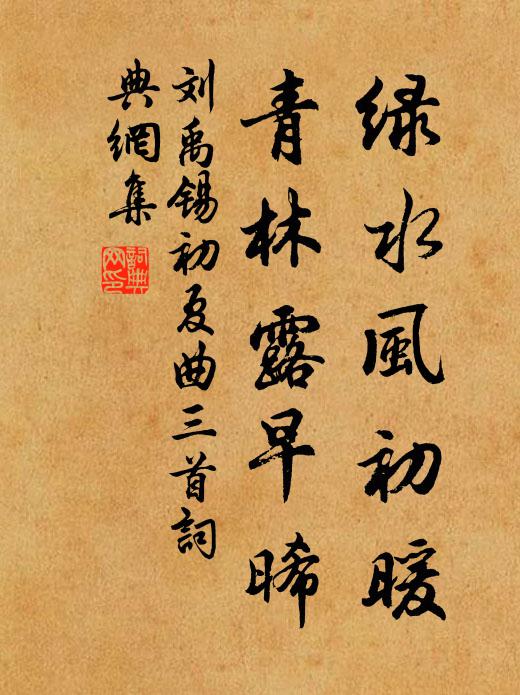 绿水風初暖
青林露早晞
刘禹锡初夏曲三首詞
典網集
詞典
网印